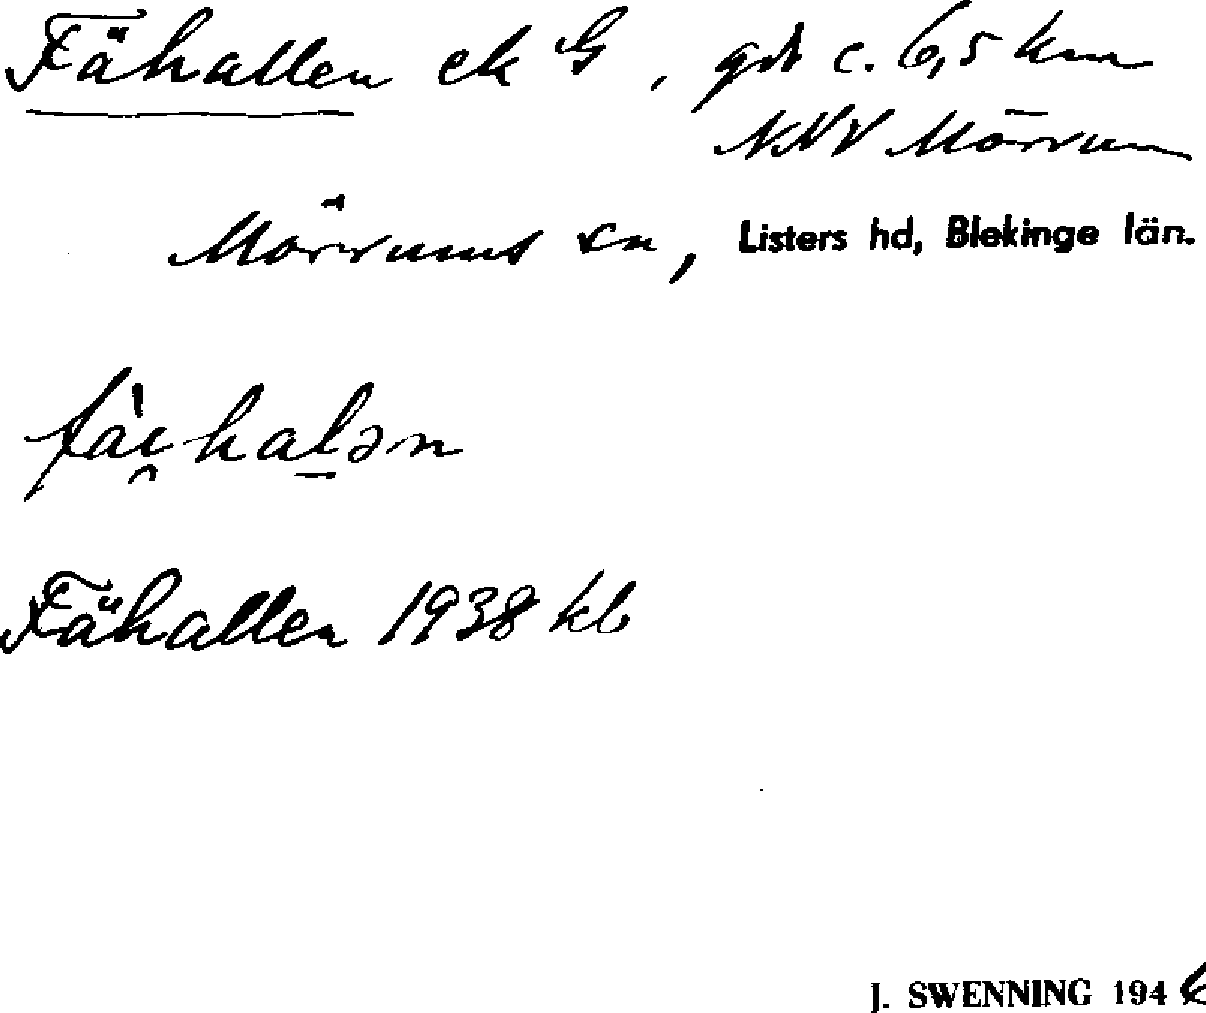 Fähallen ek G, gd c. 6,5 km
NNV Mörrum
Mörrums sn, Listers hd, Blekinge län.
fàe̯halən
Fähallen 1938 kb
J. SWENNING 1946